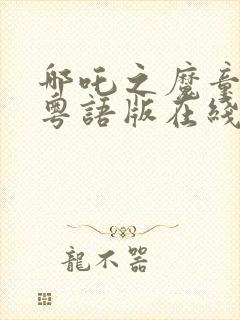 哪吒之魔童
粵語版在綫
龍不器